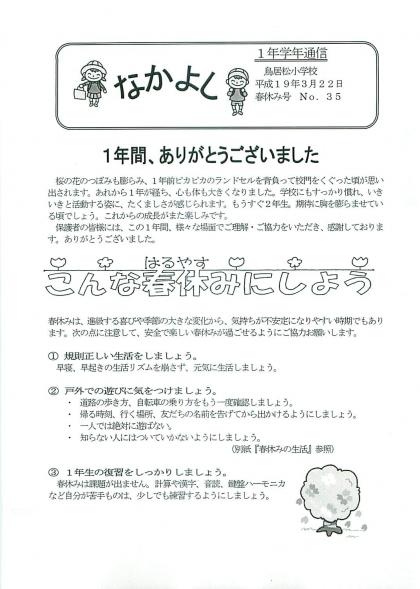 なかよし
1年学年通信
鳥居松小学校
平成19年3月22日
春休み号 No.35
1年間、ありがとうございました
桜の花のつぼみも膨らみ、1年前ピカピカのランドセルを背負って校門をくぐった頃が思い
出されます。あれから1年が経ち、心も体も大きくなりました。学校にもすっかり慣れ、いき
いきと活動する姿に、たくましさが感じられます。もうすぐ2年生。期待に胸を膨らませてい
る頃でしょう。これからの成長がまた楽しみです。
保護者の皆様には、この1年間、様々な場面でご理解・ご協力をいただき、感謝しておりま
す。ありがとうございました。
はるやす
こんな春休みにしよう
春休みは、進級する喜びや季節の大きな変化から、気持ちが不安定になりやすい時期でもあり
ます。次の点に注意して、安全で楽しい春休みが過ごせるようにご協力お願いします。
① 規則正しい生活をしましょう。
早寝、早起きの生活リズムを崩さず、元気に生活しましょう。
② 戸外での遊びに気をつけましょう。
・ 道路の歩き方、自転車の乗り方をもう一度確認しましょう。
・ 帰る時刻、行く場所、友だちの名前を告げてから出かけるようにしましょう。
・ 一人では絶対に遊ばない。
・ 知らない人にはついていかないようにしましょう。
(別紙『春休みの生活』参照)
③ 1年生の復習をしっかりしましょう。
春休みは課題が出ません。計算や漢字、音読、鍵盤ハーモニカ
など自分が苦手ものは、少しでも練習するようにしましょう。